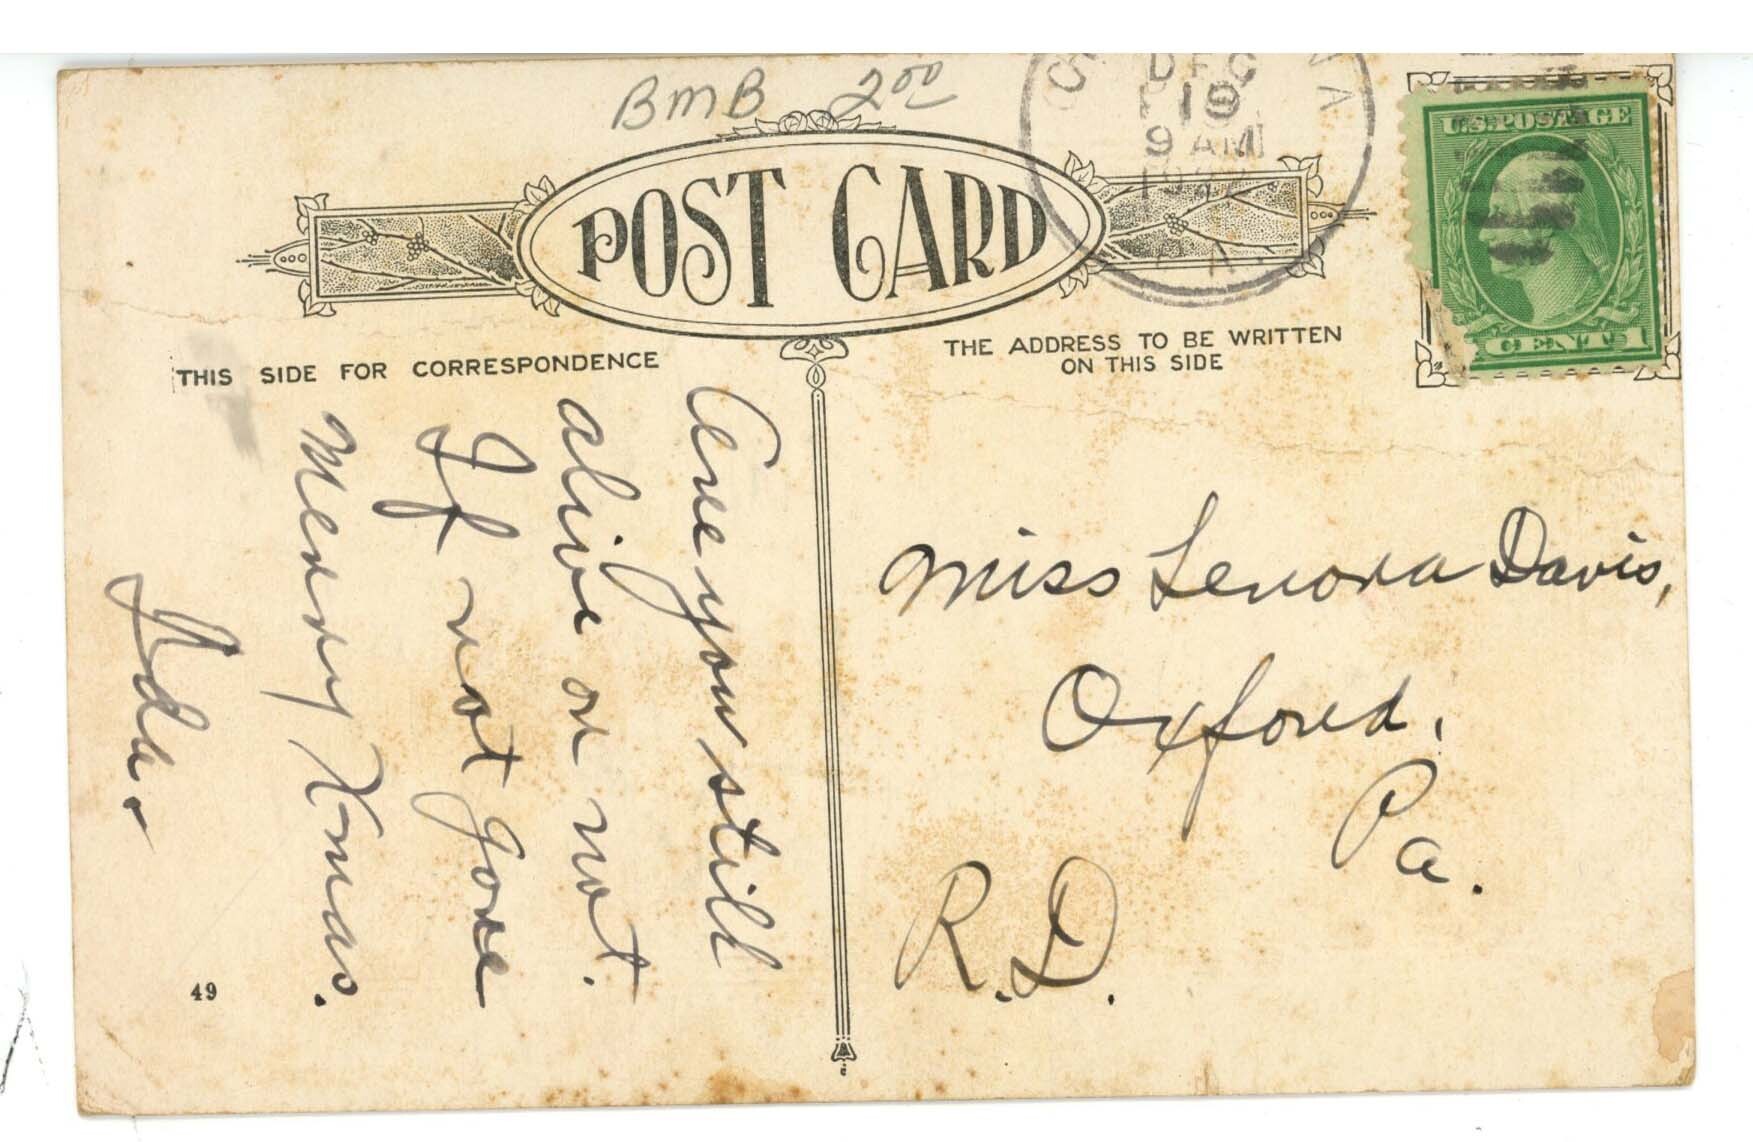 BMB 2.00
DEC
19
9 AM
U.S. POSTAGE
CENT 1
POST CARD
THIS SIDE FOR CORRESPONDENCE
THE ADDRESS TO BE WRITTEN
ON THIS SIDE
Are you still
alive or not.
If not gone
Merry Xmas.
Ida.
Miss Lenora Davis,
Oxford,
Pa.
R.D.
49